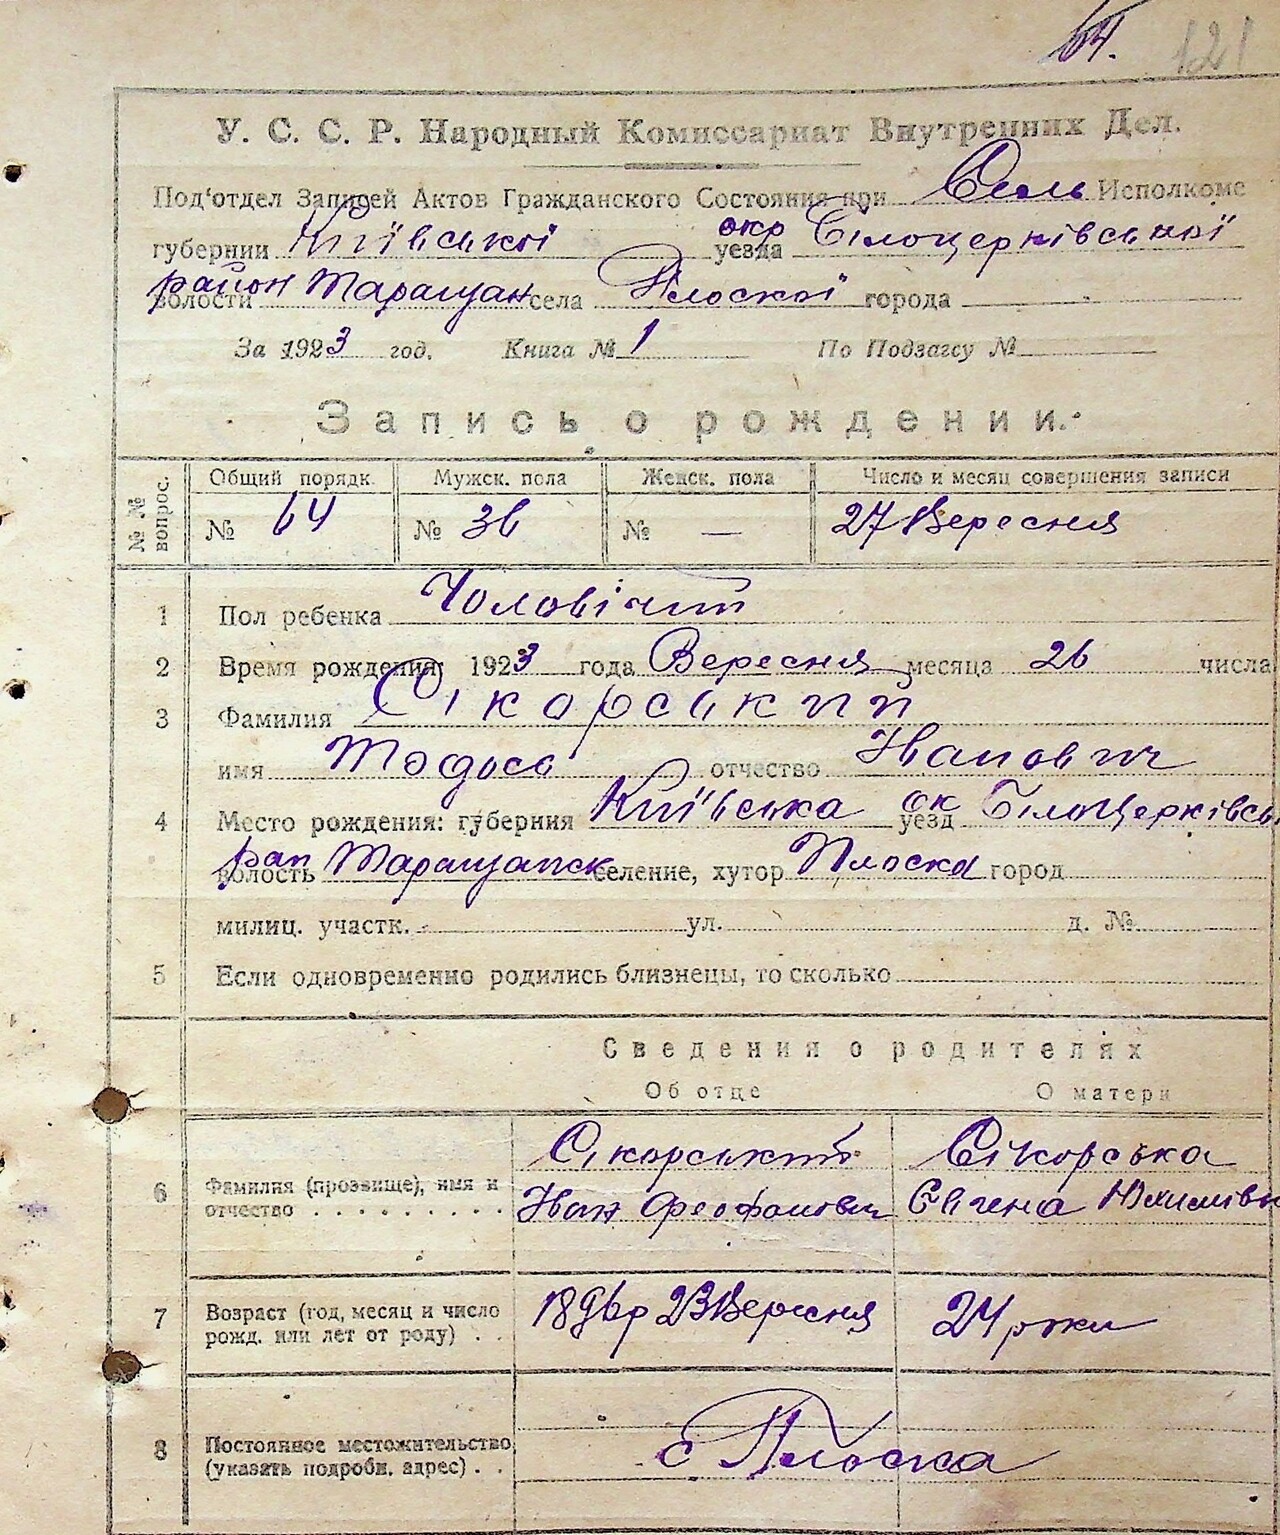 64. 121
У. С. С. Р. Народный Комиссариат Внутренних Дел.
Под'отдел Записей Актов Гражданского Состояния при Сель Исполкоме
губернии Київської уезда окр Білоцерківської
волости район Таращан села Плоскої города
За 1923 год. Книга № 1 По Подзагсу №
Запись о рождении.
№ № вопрос. Общий порядк. Мужск. пола Женск. пола Число и месяц совершения записи
№ 64 № 36 № — 27 Вересня
1 Пол ребенка Чоловічий
2 Время рождения: 1923 года Вересня месяца 26 числа
3 Фамилия Сікорський
имя Тодось отчество Иванович
4 Место рождения: губерния Київська уезд ок Білоцерківсь
волость рап Таращанск селение, хутор Плоска город
милиц. участк. ул. д. №
5 Если одновременно родились близнецы, то сколько
Сведения о родителях
Об отце О матери
Сікорський Сікорська
6 Фамилия (прозвище), имя и отчество Иван Феофанович Євгена Юхимівн
7 Возраст (год, месяц и число рожд. или лет от роду) 23 Вересня 24 роки
8 Постоянное местожительство (указать подробн. адрес) с Плоска